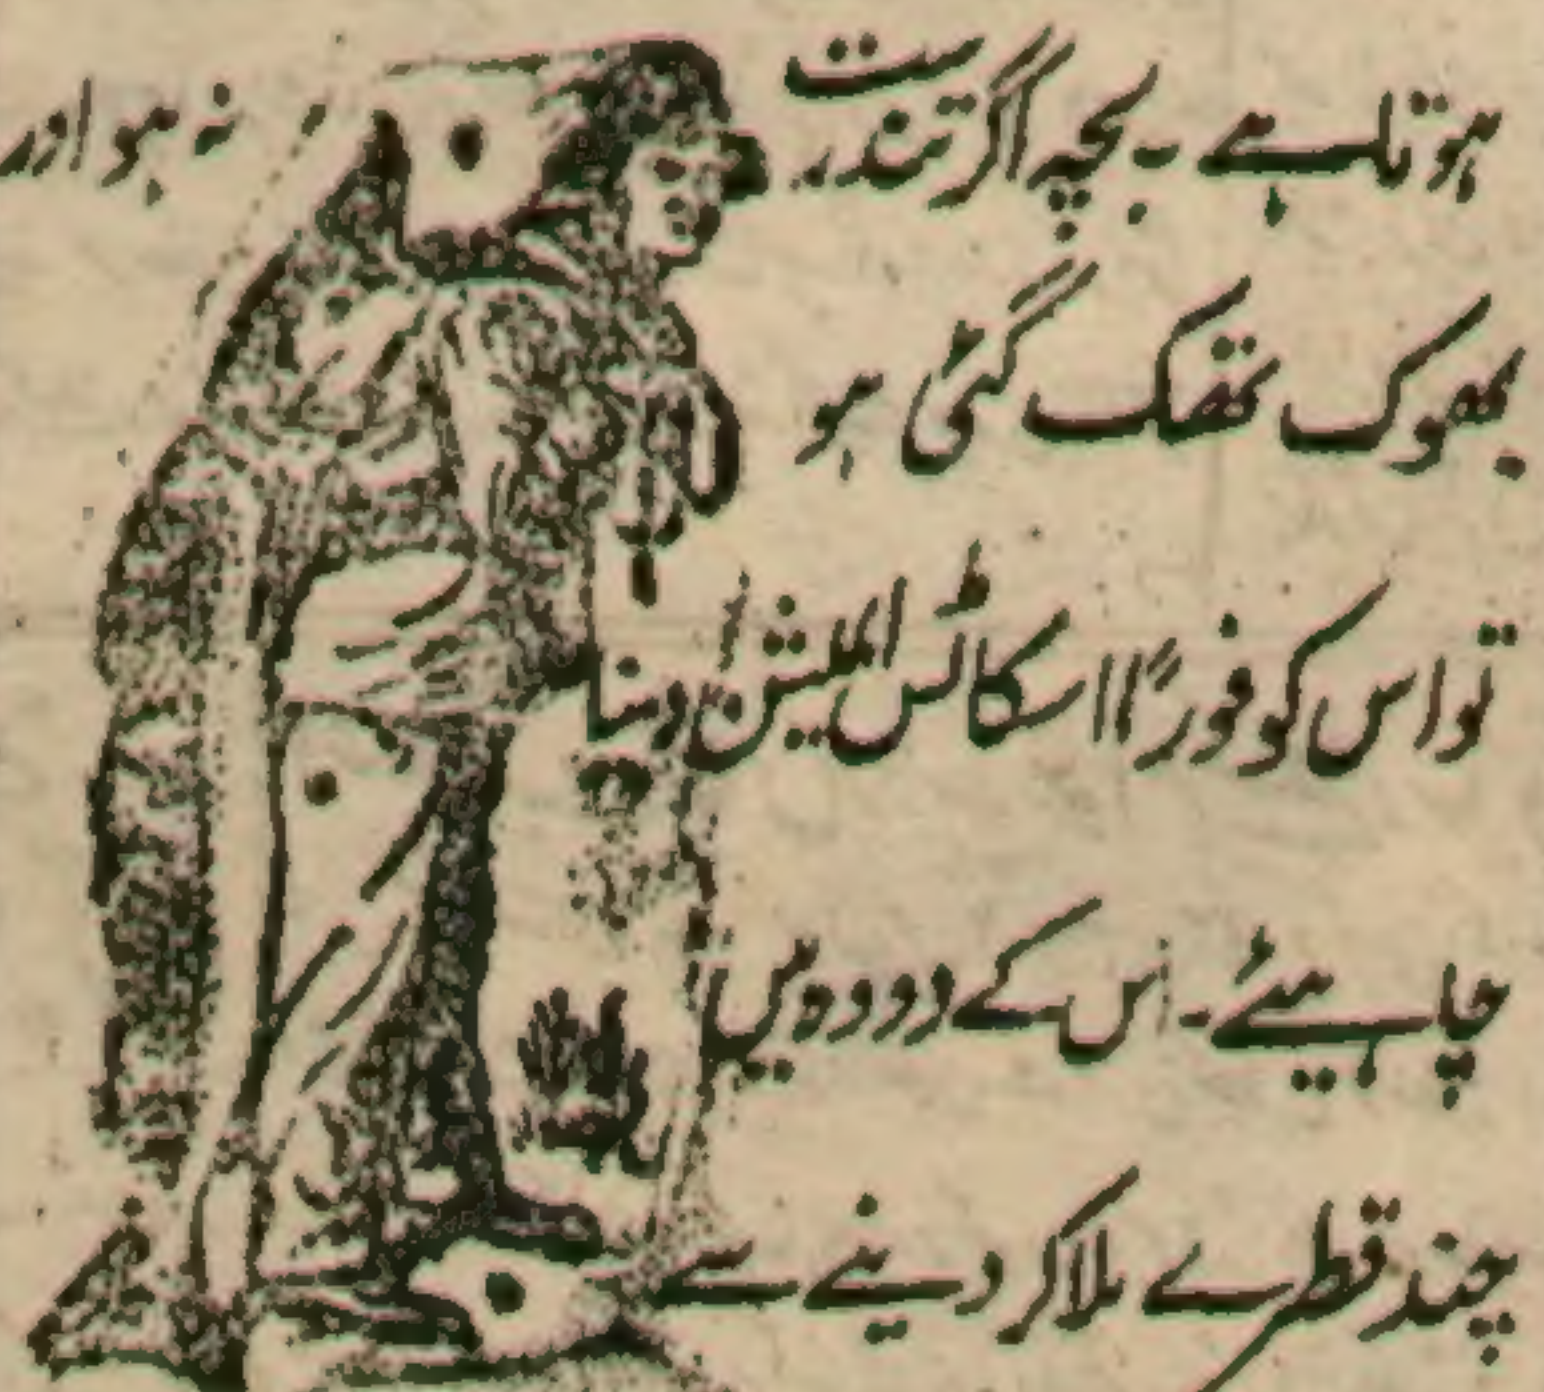 ہوتا ہے ۔ بچہ اگر تندرست نہ ہو اور
بھوک تھک گئی ہو
تو اس کو فوراً اسکاٹس املیشن دینا
چاہیئے ۔ اس کے دودہ میں
چند قطرے ملا کر دینے سے